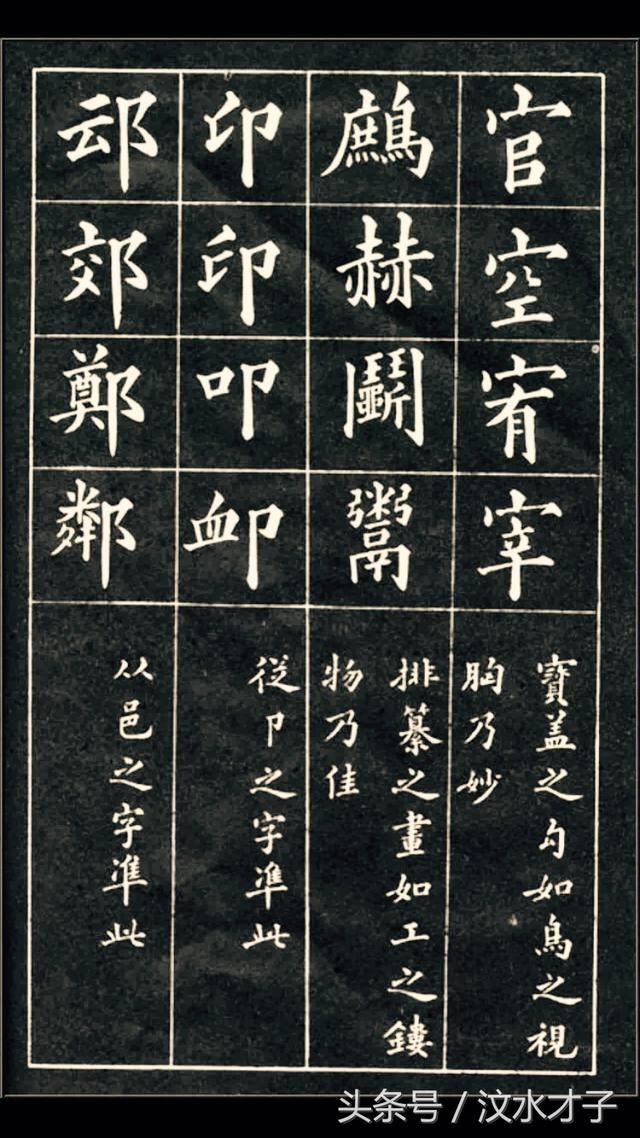 官
空
宥
宰
寶盖之勾如鳥之視
胸乃妙
鷓
赫
鬭
鬻
排纂之畫如工之鏤
物乃佳
印
印
叩
卹
従卩之字準此
䢵
郊
鄭
鄰
从邑之字準此
头条号 / 汶水才子